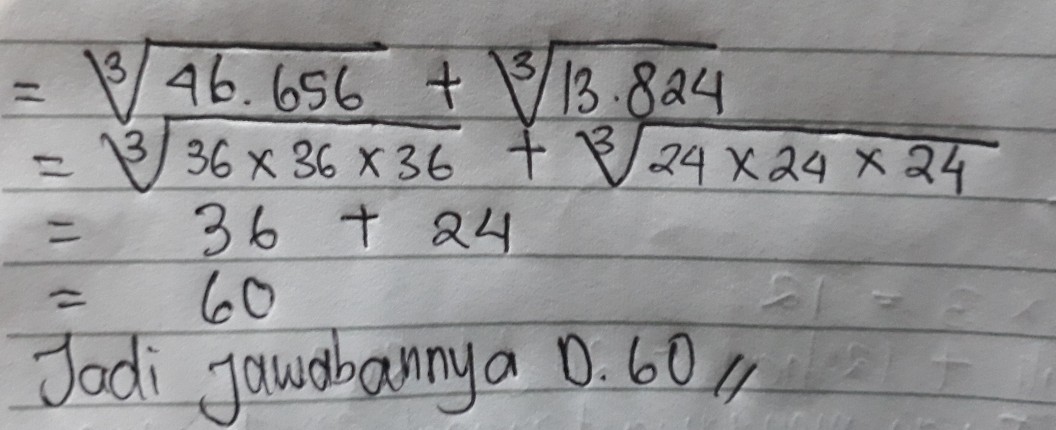 = ∛46.656 + ∛13.824
= ∛36 × 36 × 36 + ∛24 × 24 × 24
= 36 + 24
= 60
Jadi jawabannya D. 60 //